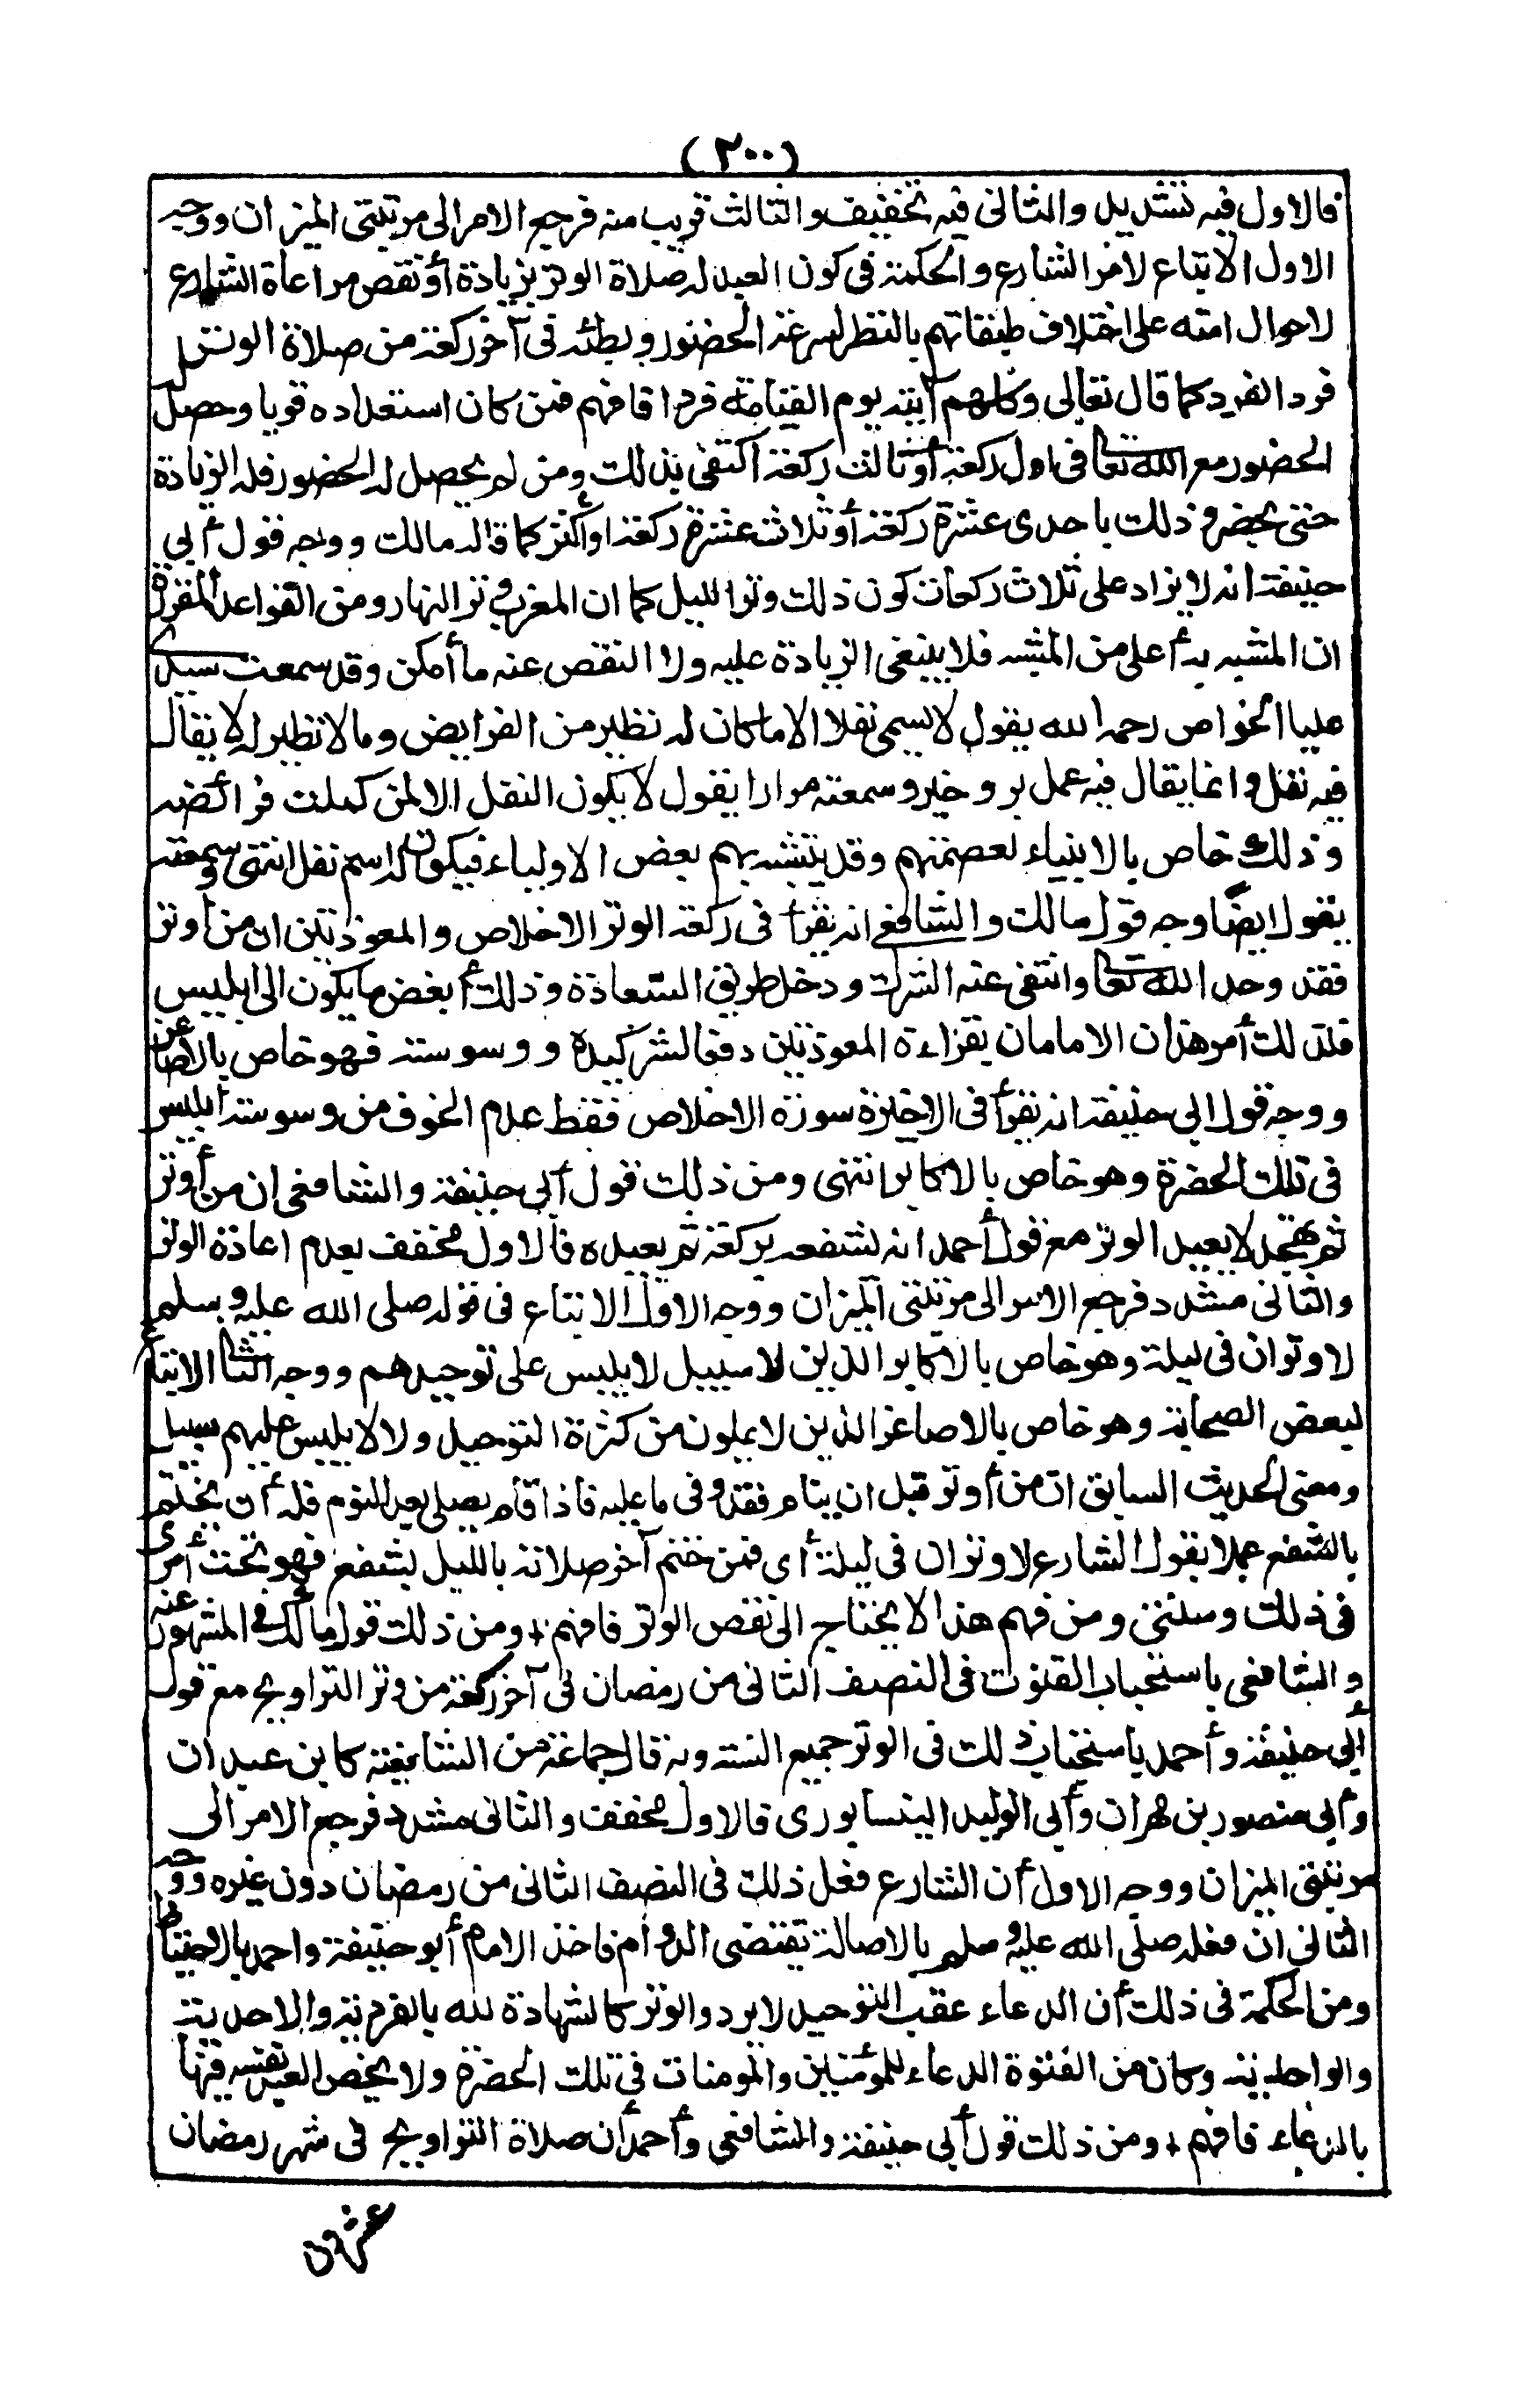 (٢٠٠)
فالاول فيه تشديد والثانى فيه تخفيف والثالث قريب منه فرجع الامر الى مرتبتى الميزان ووجه
الاول الاتباع لامر الشارع والحكمة فى كون العبد له صلاة الوتر بزيادة أو نقص مراعاة الشارع
لاحوال امته على اختلاف طبقاتهم بالنظر لسرعة الحضور وبطئه فى آخر ركعة من صلاة الوتر
فردا لفرد كما قال تعالى وكلهم آتيه يوم القيامة فردا فافهم فمن كان استعداده قويا وحصل
الحضور مع الله تعا فى اول ركعة أو ثالث ركعة اكتفى بذلك ومن لم يحصل له الحضور فله الزيادة
حتى يحضر و ذلك باحدى عشرة ركعة أو ثلاث عشرة ركعة او أكثر كما قاله مالك ووجه قول أبي
حنيفة انه لا يزاد على ثلاث ركعات كون ذلك وتر الليل كما ان المغرب وتر النهار ومن القواعد المقررة
ان المشبه به أعلى من المشبه فلا ينبغى الزيادة عليه ولا النقص عنه ما أمكن وقد سمعت سيدى
عليا الخواص رحمه الله يقول لا يسمى نفلا الا ما كان له نظير من الفرايض وما لا نظير له لا يقال
فيه نفل وانما يقال فيه عمل بر وخير وسمعته مرارا يقول لا يكون النفل الا لمن كملت فرائضه
وذلك خاص بالانبياء لعصمتهم وقد يتشبه بهم بعض الاولياء فيكون له اسم نفل انتهى وسمعته
يقول ايضا وجه قول مالك والشافعى انه يقرأ فى ركعة الوتر الاخلاص والمعوذتين ان من أوتر
فقد وحد الله تعا وانتفى عنه الشرك ودخل طريق السعادة وذلك أبغض ما يكون الى ابليس
فلذلك أمر هذان الامامان بقراءة المعوذتين دفعا لشر كيده ووسوسته فهو خاص بالاصاغر
ووجه قول ابي حنيفة انه يقرأ فى الاخيرة سورة الاخلاص فقط عدم الخوف من وسوسة ابليس
فى تلك الحضرة وهو خاص بالاكابر انتهى ومن ذلك قول أبى حنيفة والشافعى ان من أوتر
ثم تهجد لا يعيد الوتر مع قول أحمد انه يشفعه بركعة ثم يعيده فالاول مخفف بعدم اعادة الوتر
والثانى مشدد فرجع الامر الى مرتبتى الميزان ووجه الاول الاتباع فى قوله صلى الله عليه وسلم
لا وتران فى ليلة وهو خاص بالاكابر الذين لا سبيل لابليس على توحيدهم ووجه الثا الاتباع
لبعض الصحابة وهو خاص بالاصاغر الذين لا يملون من كثرة التوحيد ولا لابليس عليهم سبيل
ومعنى الحديث السابق ان من أوتر قبل ان ينام فقد وفى ما عليه فاذا قام يصلى بعد النوم فله أن يختم
بالشفع عملا بقول الشارع لا وتران فى ليلة أى فمن ختم آخر صلاته بالليل بشفع فهو تحت أمرى
فى ذلك وسنتى ومن فهم هذا لا يحتاج الى نقض الوتر فافهم + ومن ذلك قول مالك فى المشهور عنه
والشافعى باستحباب القنوت فى النصف الثانى من رمضان فى آخر ركعة من وتر التراويح مع قول
أبى حنيفة وأحمد باستحباب ذلك فى الوتر جميع السنة وبه قال جماعة من الشافعية كابن عبدان
وأبى منصور بن مهران وأبى الوليد النيسابورى فالاول مخفف والثانى مشدد فرجع الامر الى
مرتبتى الميزان ووجه الاول أن الشارع فعل ذلك فى النصف الثانى من رمضان دون غيره ووجه
الثانى ان فعله صلى الله عليه وسلم بالاصالة يقتضى الدوام فاخذ الامام أبو حنيفة واحمد بالاحتياط
ومن الحكمة فى ذلك أن الدعاء عقب التوحيد لا يرد والوتر كالشهادة لله بالفردية والاحدية
والواحدية وكان من الفتوة الدعاء للمؤمنين والمومنات فى تلك الحضرة ولا يخص العبد نفسه فيها
بالدعاء فافهم + ومن ذلك قول أبى حنيفة والشافعى وأحمد أن صلاة التراويح فى شهر رمضان
عشرون